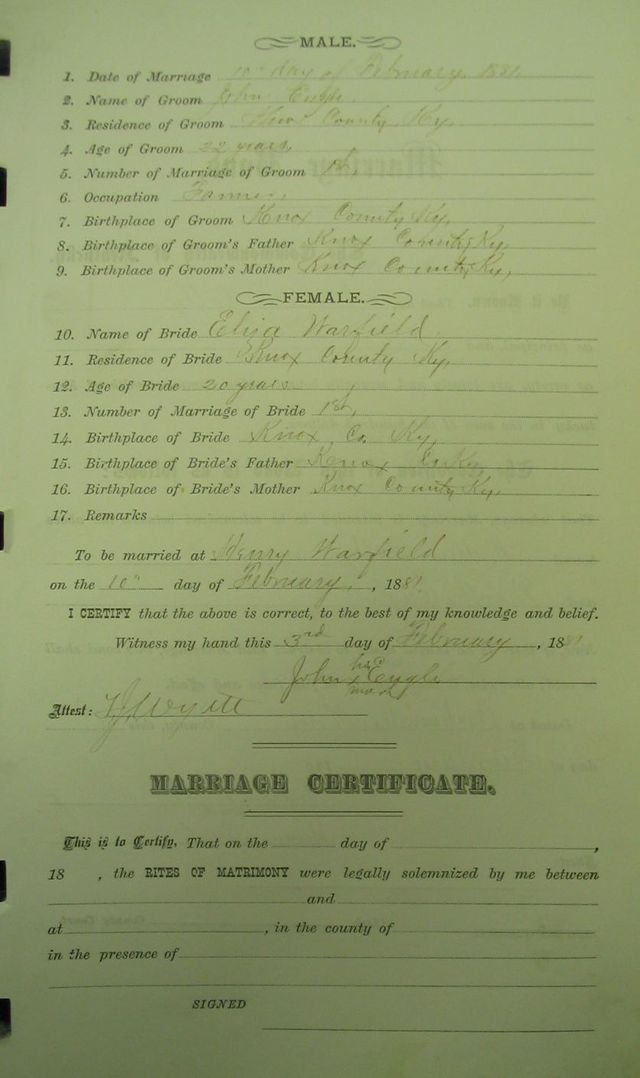 MALE.
1. Date of Marriage 10th day of February 1881
2. Name of Groom John
3. Residence of Groom Knox County Ky,
4. Age of Groom 22 years
5. Number of Marriage of Groom 1st,
6. Occupation Farmer,
7. Birthplace of Groom Knox County Ky,
8. Birthplace of Groom's Father Knox County Ky,
9. Birthplace of Groom's Mother Knox County Ky,
FEMALE.
10. Name of Bride Eliza Warfield
11. Residence of Bride Knox County Ky,
12. Age of Bride 20 years
13. Number of Marriage of Bride 1st,
14. Birthplace of Bride Knox Co. Ky,
15. Birthplace of Bride's Father Knox Co Ky,
16. Birthplace of Bride's Mother Knox County Ky,
17. Remarks
To be married at Henry Warfield
on the 10th day of February, , 1881
I CERTIFY that the above is correct, to the best of my knowledge and belief.
Witness my hand this 3rd day of February , 1881
his
John x Engle
mark
Attest:
MARRIAGE CERTIFICATE.
This is to Certify, That on the day of ,
18 , the RITES OF MATRIMONY were legally solemnized by me between
and
at , in the county of
in the presence of
SIGNED